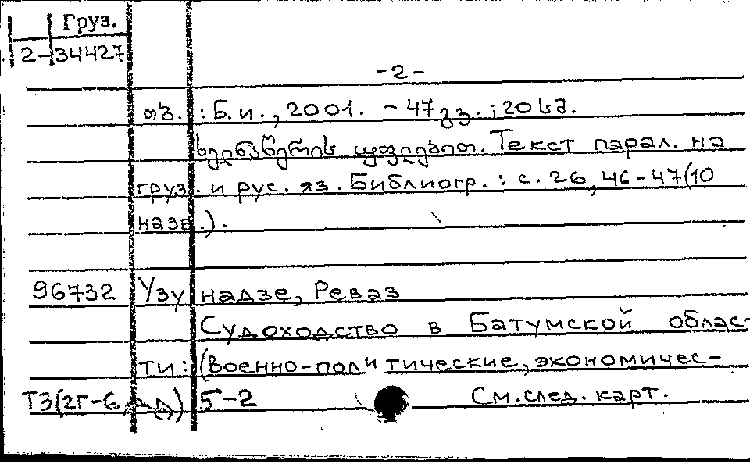 Груз.
2-34427
-2-
თბ. : Б.и., 2001. - 47 გვ. ; 20 სმ.
ხელნაწერის უფლებით. Текст парал. на
груз. и рус. яз. Библиогр.: с. 26, 46-47(10
назв.).
96732 Узунадзе, Реваз
Судоходство в Батумской облас-
ти: (Военно-политические, экономичес-
ТЗ(2Г-6 5-2 См.след. карт.